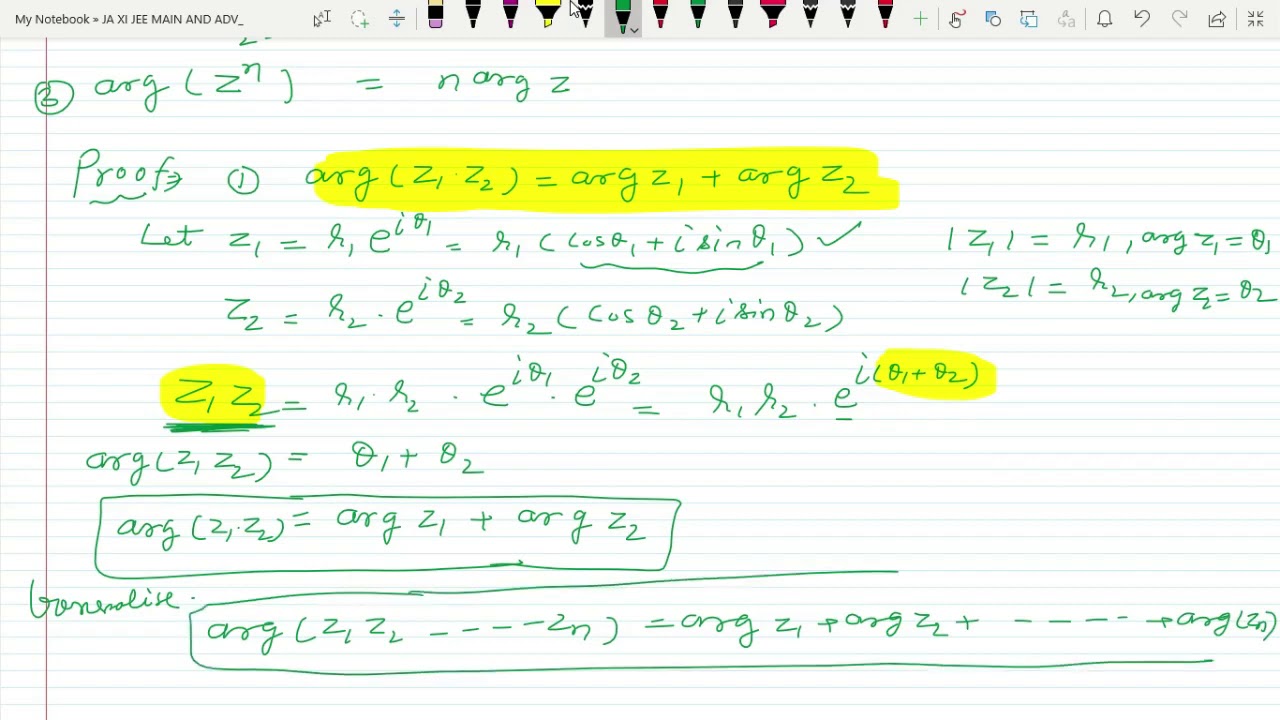 My Notebook » JA XI JEE MAIN AND ADV_
2
③ arg (zⁿ) = n arg z
Proofs ① arg (z₁·z₂) = arg z₁ + arg z₂
Let z₁ = r₁ e^{iθ₁} = r₁ (cosθ₁ + i sinθ₁) ✓ |z₁| = r₁, arg z₁ = θ₁
z₂ = r₂ · e^{iθ₂} = r₂ (cosθ₂ + i sinθ₂) |z₂| = r₂, arg z₂ = θ₂
z₁ z₂ = r₁ · r₂ · e^{iθ₁} · e^{iθ₂} = r₁ r₂ · e^{i(θ₁+θ₂)}
arg (z₁ z₂) = θ₁ + θ₂
arg (z₁·z₂) = arg z₁ + arg z₂
Generalise.
arg (z₁ z₂ ----- zₙ) = arg z₁ + arg z₂ + ----- + arg(zₙ)